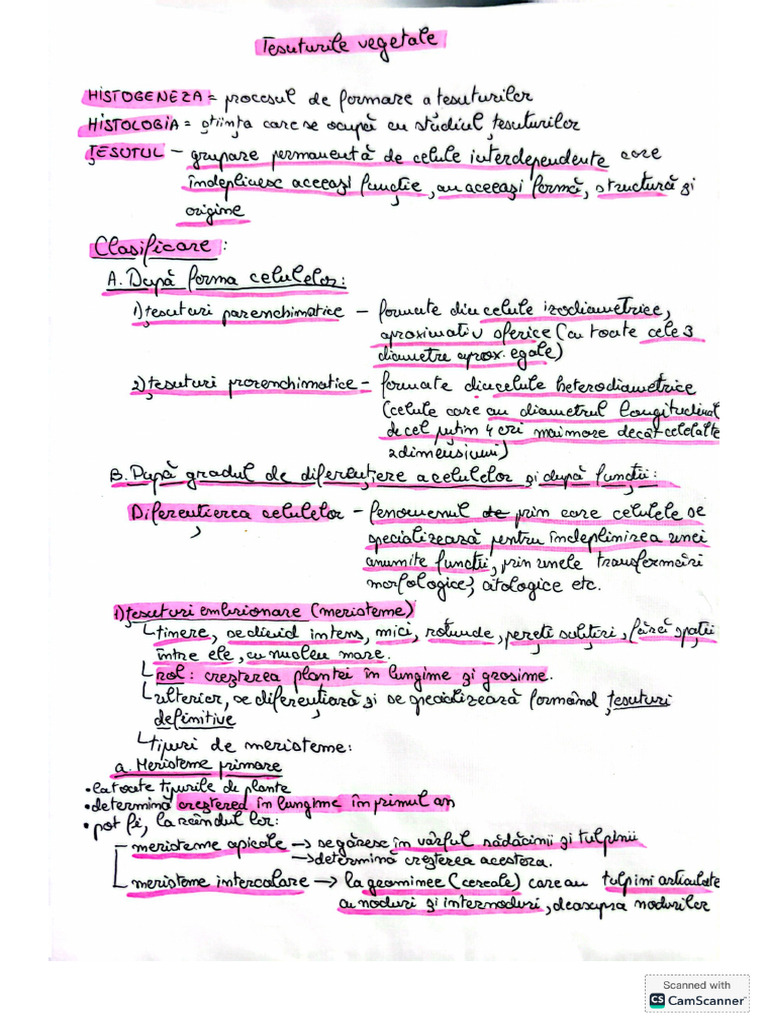 Țesuturile vegetale
HISTOGENEZA = procesul de formare a țesuturilor
HISTOLOGIA = știința care se ocupă cu studiul țesuturilor
ȚESUTUL – grupare permanentă de celule interdependente care
îndeplinesc aceeași funcție, au aceeași formă, structură și
origine
Clasificare:
A. După forma celulelor:
1) țesuturi parenchimatice – formate din celule izodiametrice,
aproximativ sferice (cu toate cele 3
diametre aprox. egale)
2) țesuturi prozenchimatice – formate din celule heterodiametrice
(celule care au diametrul longitudinal
de cel puțin 4 ori mai mare decât celelalte
2 dimensiuni)
B. După gradul de diferențiere a celulelor și după funcții:
Diferențierea celulelor – fenomenul de prin care celulele se
specializează pentru îndeplinirea unei
anumite funcții, prin unele transformări
morfologice, citologice etc.
1) țesuturi embrionare (meristeme)
tinere, se divid intens, mici, rotunde, pereți subțiri, fără spații
între ele, cu nucleu mare.
rol: creșterea plantei în lungime și grosime.
ulterior, se diferențiază și se specializează formând țesuturi
definitive
tipuri de meristeme:
a. Meristeme primare
• la toate tipurile de plante
• determină creșterea în lungime în primul an
• pot fi, la rândul lor:
meristeme apicale → se găsesc în vârful rădăcinii și tulpinii
→ determină creșterea acestora.
meristeme intercalare → la graminee (cereale) care au tulpini articulate
cu noduri și internoduri, deasupra nodurilor
Scanned with
CS CamScanner